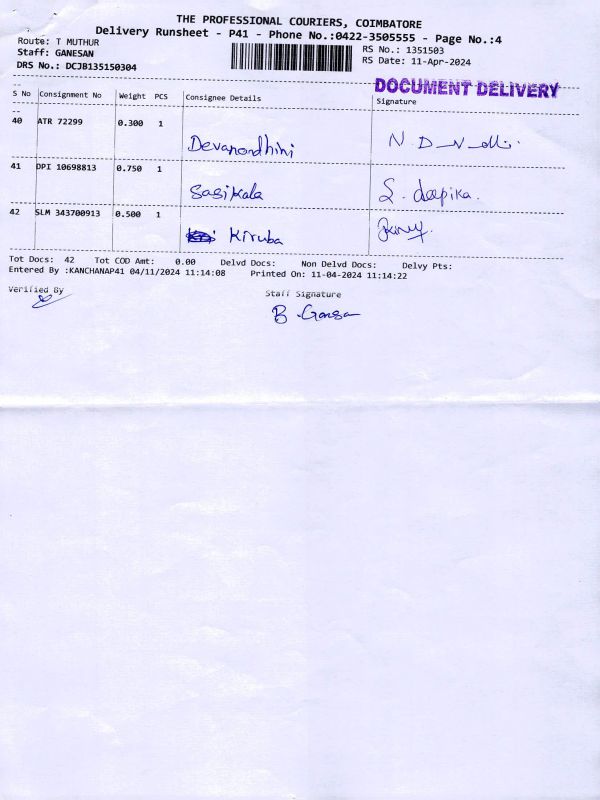 THE PROFESSIONAL COURIERS, COIMBATORE
Delivery Runsheet - P41 - Phone No.:0422-3505555 - Page No.:4
Route: T MUTHUR RS No.: 1351503
Staff: GANESAN RS Date: 11-Apr-2024
DRS No.: DCJB135150304
DOCUMENT DELIVERY
S No Consignment No Weight PCS Consignee Details Signature
40 ATR 72299 0.300 1
Devanandhini
41 DPI 10698813 0.750 1
Sasikala S. deepika.
42 SLM 343700913 0.500 1
Kiruba
Tot Docs: 42 Tot COD Amt: 0.00 Delvd Docs: Non Delvd Docs: Delvy Pts:
Entered By :KANCHANAP41 04/11/2024 11:14:08 Printed On: 11-04-2024 11:14:22
Verified By Staff Signature